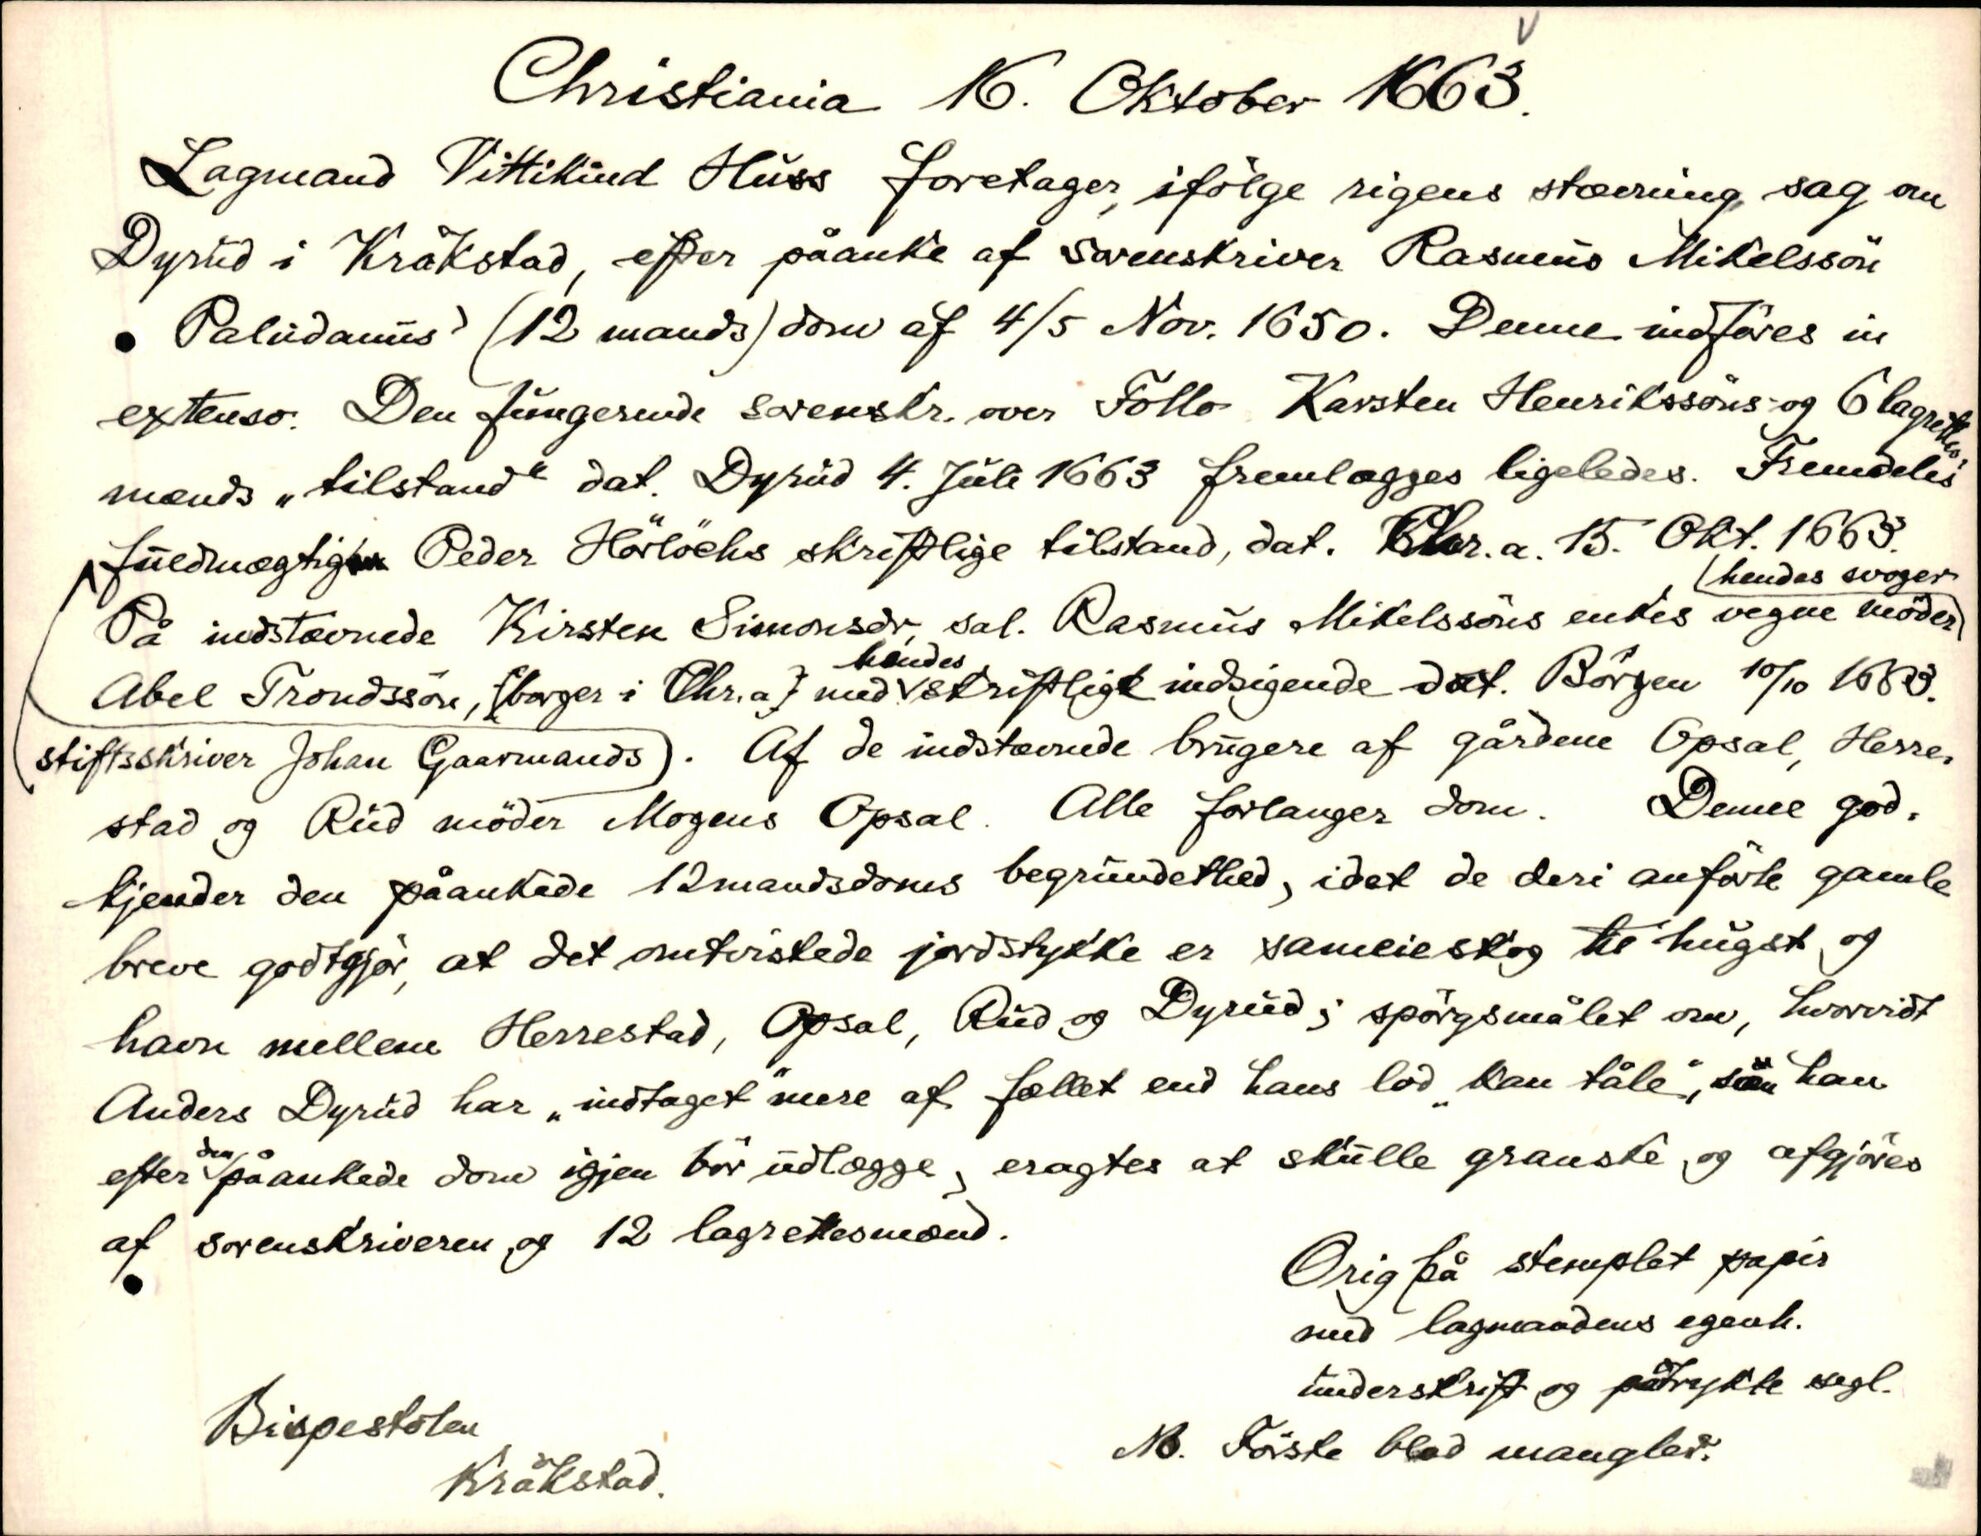 Christiania 16. Oktober 1663.
Lagmand Vittikind Huss foretager, ifölge rigens stævning, sag om
Dyrud i Kråkstad, efter påanke af sorenskriver Rasmus Mikelssön
Paludanus' (12 mands) dom af 4/5 Nov. 1650. Denne indföres in
extenso. Den fungerende sorenskr. over Follo Karsten Henrikssöns og 6 lagrettes-
mænds „tilstand“ dat. Dyrud 4. Juli 1663 fremlægges ligeledes. Fremdeles
fuldmægtig Peder Hörlöchs skriftlige tilstand, dat. Chr.a. 15. Okt. 1663.
På indstævnede Kirsten Simonsdr, sal. Rasmus Mikelssöns enkes vegne möder (hendes svoger)
Abel Trondssön, (borger i Chr.a) med hendes skriftlige indsigende dat. Börgen 10/10 1663.
stiftsskriver Johan Gaarmands). Af de indstævnede brugere af gårdene Opsal, Herre-
stad og Rud möder Mogens Opsal. Alle forlanger dom. Denne god-
kjender den påankede 12mandsdoms begrundethed, idet de deri anförte gamle
breve godtgjör, at det omtvistede jordstykke er sameieskog til hugst og
havn mellem Herrestad, Opsal, Rud og Dyrud; spörgsmålet om, hvorvidt
Anders Dyrud har „indtaget“ mere af fællet end hans lod „kan tåle“, som han
efter den påankede dom igjen bör udlægge, eragtes at skulle granske og afgjöres
af sorenskriveren og 12 lagrettesmænd.
Orig på stemplet papir
med lagmandens egenh.
underskrift og påtrykte segl.
NB. Förste blad mangler.
Bispestolen
Kråkstad.